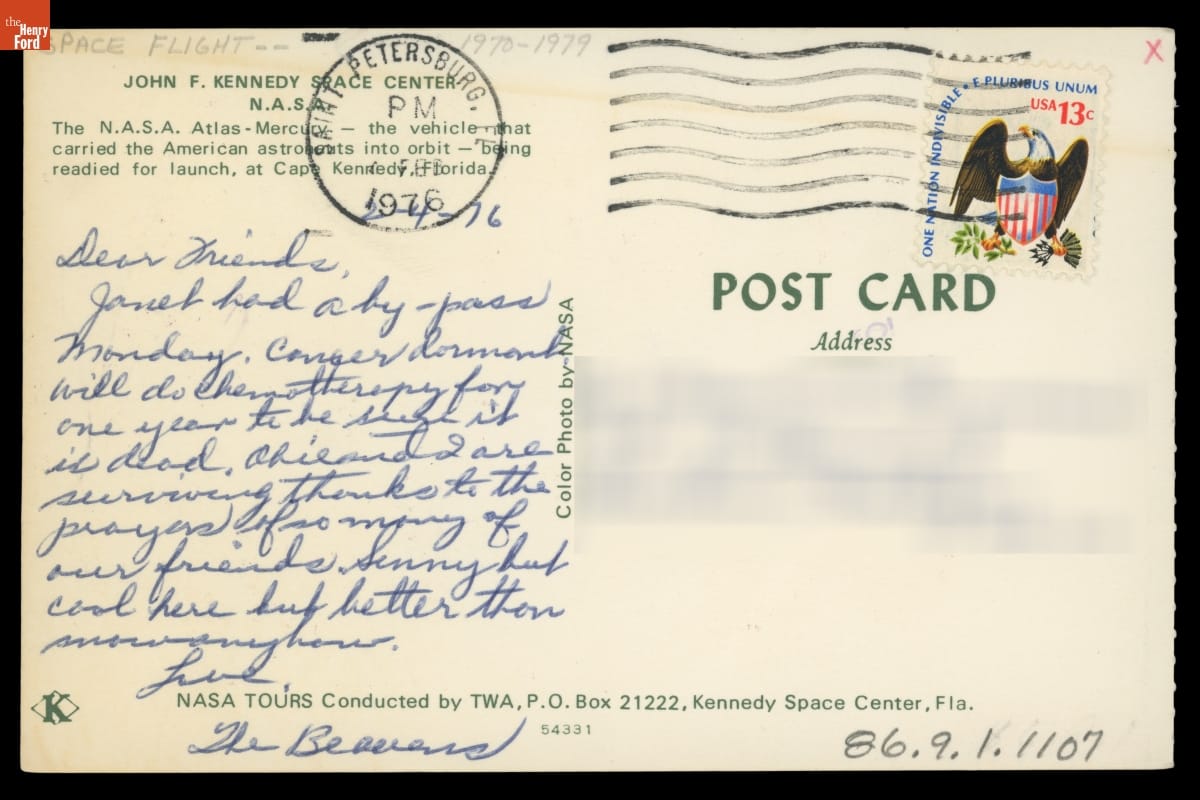 the
Henry
Ford
SPACE FLIGHT-- 1970-1979
X
JOHN F. KENNEDY SPACE CENTER
N.A.S.A.
The N.A.S.A. Atlas-Mercury — the vehicle that
carried the American astronauts into orbit — being
readied for launch, at Cape Kennedy, Florida.
SAINT PETERSBURG, FL
PM
4 FEB
1976
ONE NATION INDIVISIBLE • E PLURIBUS UNUM
USA 13c
2-4-76
Dear Friends,
Janet had a by-pass
Monday. Cancer dormant
will do chemotherapy for
one year to be sure it
is dead. and I are
surviving thanks to the
prayers of so many of
our friends. Sunny but
cool here but better than
snow anyhow.
Love,
The Beavens
Color Photo by NASA
POST CARD
Address
K
NASA TOURS Conducted by TWA, P.O. Box 21222, Kennedy Space Center, Fla.
54331
86.9.1.1107